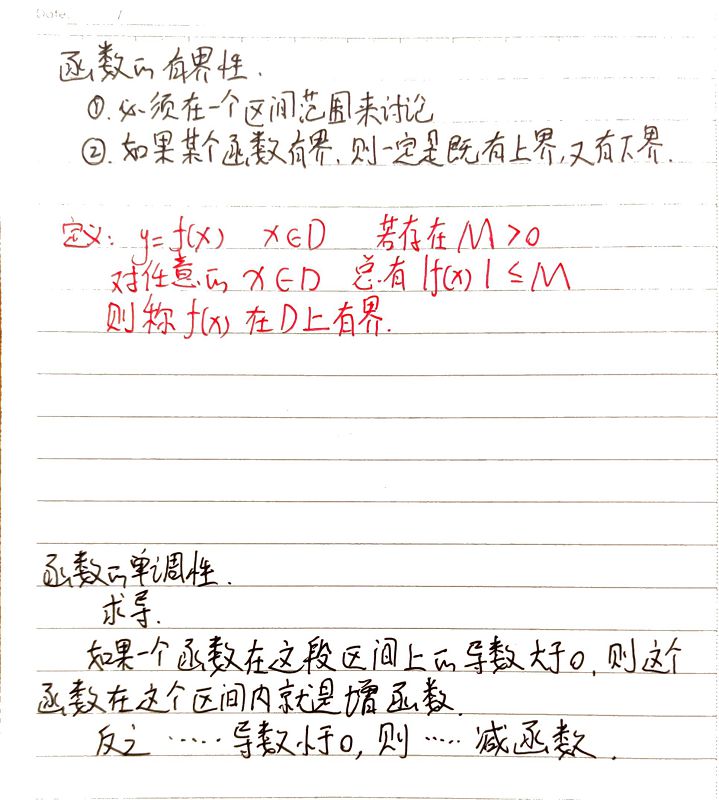 Date. /
函数的有界性.
①.必须在一个区间范围来讨论
②.如果某个函数有界,则一定是既有上界,又有下界.
定义: y=f(x) x∈D 若存在M>0
对任意的 x∈D 总有|f(x)|≤M
则称f(x)在D上有界.
函数的单调性.
求导.
如果一个函数在这段区间上的导数大于0,则这个
函数在这个区间内就是增函数.
反之 ……导数小于0,则……减函数.